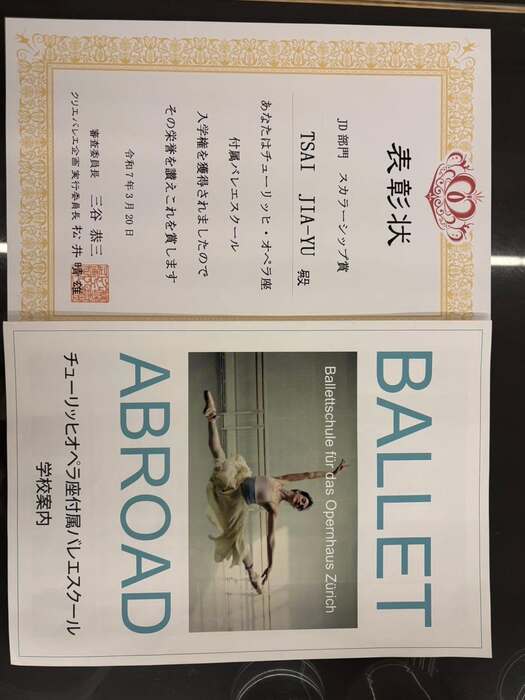 表彰状
JD部門 スカラーシップ賞
TSAI JIA-YU 殿
あなたはチューリッヒ・オペラ座
付属バレエスクール
入学権を獲得されましたので
その栄誉を讃えこれを賞します
令和7年3月20日
審査委員長 三谷 恭三
クリエバレエ企画 実行委員長 松井 晴雄
BALLET
Ballettschule für das Opernhaus Zürich
ABROAD
チューリッヒオペラ座付属バレエスクール
学校案内